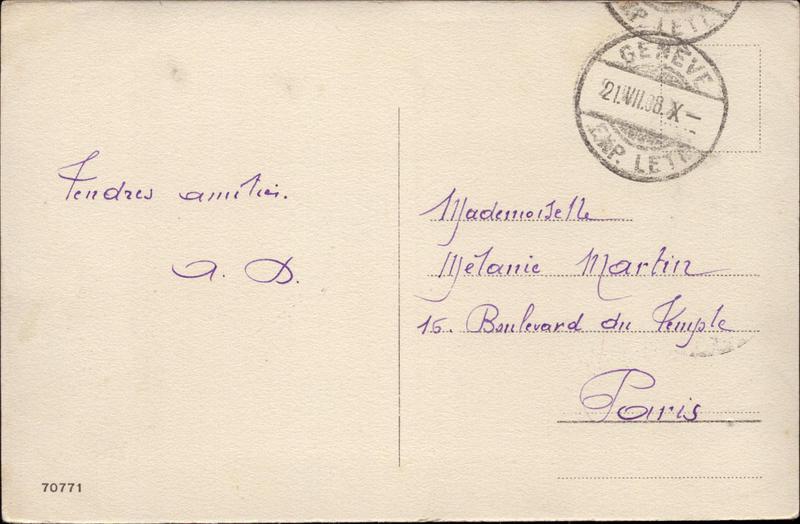 EXP. LETT
GENÈVE
21.VII.08.X–
EXP. LETT.
Tendres amitiés.
A. D.
Mademoiselle
Mélanie Martin
15. Boulevard du Temple
Paris
70771